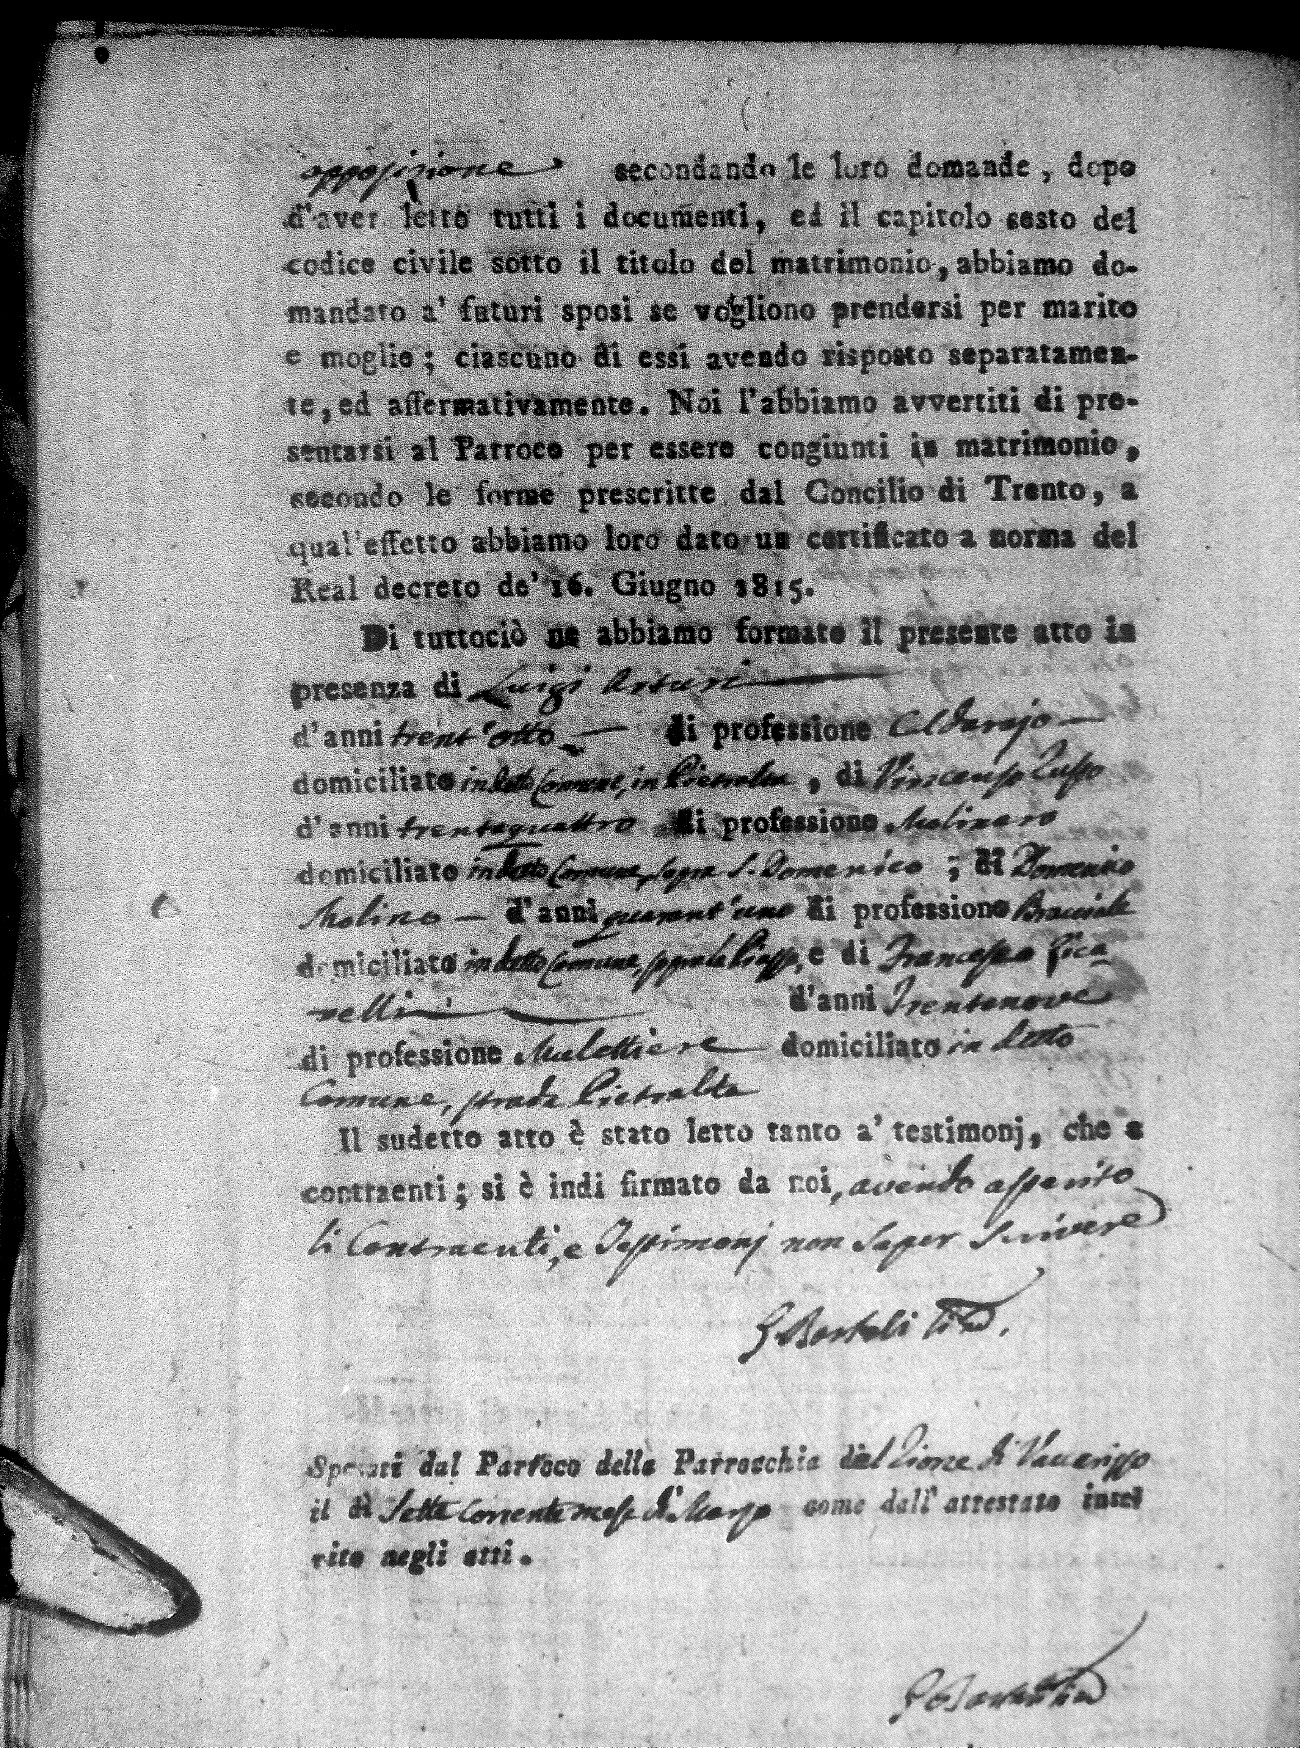 opposizione secondando le loro domande, dopo
d'aver letto tutti i documenti, ed il capitolo sesto del
codice civile sotto il titolo del matrimonio, abbiamo do-
mandato a' futuri sposi se vogliono prendersi per marito
e moglie; ciascuno di essi avendo risposto separatamen-
te, ed affermativamente. Noi l'abbiamo avvertiti di pre-
sentarsi al Parroco per essere congiunti in matrimonio,
secondo le forme prescritte dal Concilio di Trento, a
qual'effetto abbiamo loro dato un certificato a norma del
Real decreto de' 16. Giugno 1815.
Di tuttociò ne abbiamo formato il presente atto in
presenza di Luigi Arturi
d'anni trent'otto — di professione Caldarajo —
domiciliato in detto Comune, in Pietralta, di Vincenzo Zuffo
d'anni trentaquattro di professione Molinaro
domiciliato in detto Comune, sopra S. Domenico; di Domenico
Molino — d'anni quarant'uno di professione Bracciale
domiciliato in detto Comune, sopra la Piazza, e di Francesco Pica
nelli d'anni Trentanove
di professione Mulettiere domiciliato in detto
Comune, strada Pietralta
Il sudetto atto è stato letto tanto a' testimonj, che a
contraenti; si è indi firmato da noi, avendo asserito
li Contraenti, e Testimonj non saper scrivere
Bartoli
Sposati dal Parroco della Parrocchia del Rione di Vaccarizzo
il dì Sette corrente mese di Marzo come dall'attestato inse
rito negli atti.